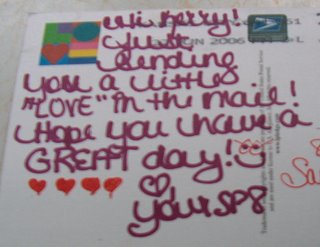 Hi Kerry!
Just
Sending
you a little
"LOVE" in the mail!
Hope you have a
GREAT day!
Your SP8
JUN 2006